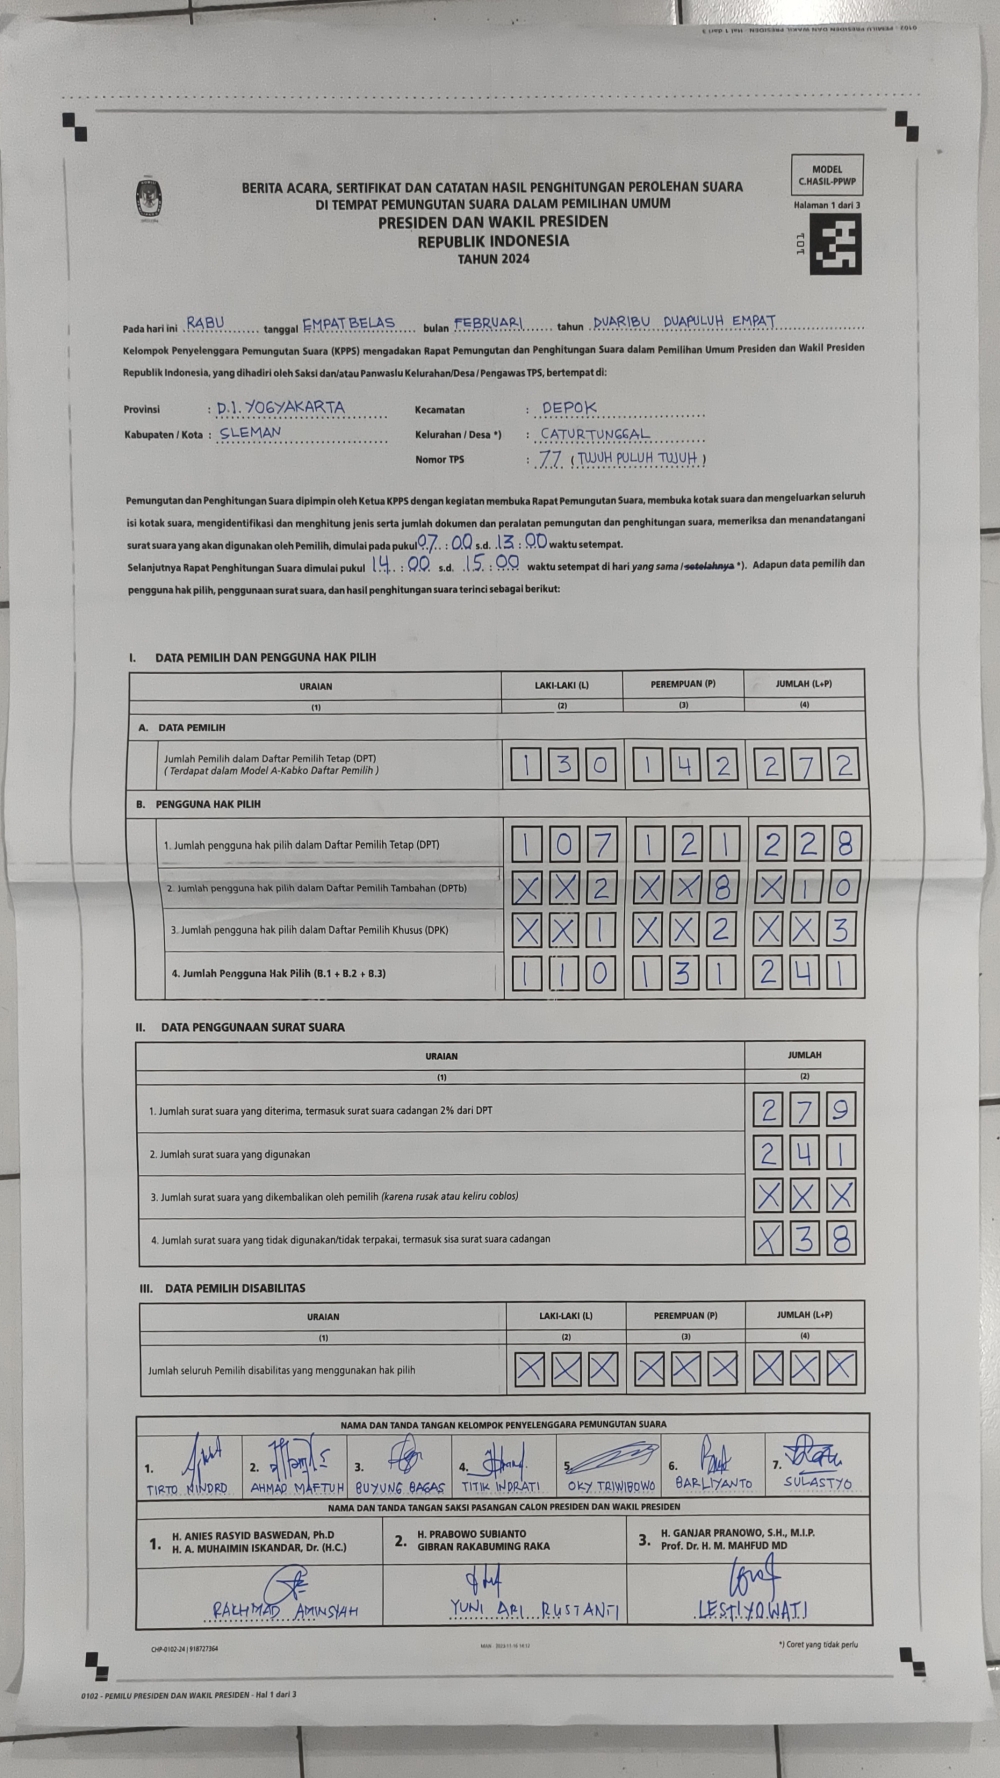 0102 - PEMILU PRESIDEN DAN WAKIL PRESIDEN - Hal 1 dari 3
MODEL
C.HASIL-PPWP
Halaman 1 dari 3
101
BERITA ACARA, SERTIFIKAT DAN CATATAN HASIL PENGHITUNGAN PEROLEHAN SUARA
DI TEMPAT PEMUNGUTAN SUARA DALAM PEMILIHAN UMUM
PRESIDEN DAN WAKIL PRESIDEN
REPUBLIK INDONESIA
TAHUN 2024
Pada hari ini RABU tanggal EMPAT BELAS bulan FEBRUARI tahun DUARIBU DUAPULUH EMPAT
Kelompok Penyelenggara Pemungutan Suara (KPPS) mengadakan Rapat Pemungutan dan Penghitungan Suara dalam Pemilihan Umum Presiden dan Wakil Presiden
Republik Indonesia, yang dihadiri oleh Saksi dan/atau Panwaslu Kelurahan/Desa / Pengawas TPS, bertempat di:
Provinsi : D.I. YOGYAKARTA Kecamatan : DEPOK
Kabupaten / Kota : SLEMAN Kelurahan / Desa *) : CATURTUNGGAL
Nomor TPS : 77 ( TUJUH PULUH TUJUH )
Pemungutan dan Penghitungan Suara dipimpin oleh Ketua KPPS dengan kegiatan membuka Rapat Pemungutan Suara, membuka kotak suara dan mengeluarkan seluruh
isi kotak suara, mengidentifikasi dan menghitung jenis serta jumlah dokumen dan peralatan pemungutan dan penghitungan suara, memeriksa dan menandatangani
surat suara yang akan digunakan oleh Pemilih, dimulai pada pukul 07 : 00 s.d. 13 : 00 waktu setempat.
Selanjutnya Rapat Penghitungan Suara dimulai pukul 14 : 00 s.d. 15 : 00 waktu setempat di hari yang sama / setelahnya *). Adapun data pemilih dan
pengguna hak pilih, penggunaan surat suara, dan hasil penghitungan suara terinci sebagai berikut:
I. DATA PEMILIH DAN PENGGUNA HAK PILIH
URAIAN LAKI-LAKI (L) PEREMPUAN (P) JUMLAH (L+P)
(1) (2) (3) (4)
A. DATA PEMILIH
Jumlah Pemilih dalam Daftar Pemilih Tetap (DPT) 1 3 0 1 4 2 2 7 2
( Terdapat dalam Model A-Kabko Daftar Pemilih )
B. PENGGUNA HAK PILIH
1. Jumlah pengguna hak pilih dalam Daftar Pemilih Tetap (DPT) 1 0 7 1 2 1 2 2 8
2. Jumlah pengguna hak pilih dalam Daftar Pemilih Tambahan (DPTb) X X 2 X X 8 X 1 0
3. Jumlah pengguna hak pilih dalam Daftar Pemilih Khusus (DPK) X X 1 X X 2 X X 3
4. Jumlah Pengguna Hak Pilih (B.1 + B.2 + B.3) 1 1 0 1 3 1 2 4 1
II. DATA PENGGUNAAN SURAT SUARA
URAIAN JUMLAH
(1) (2)
1. Jumlah surat suara yang diterima, termasuk surat suara cadangan 2% dari DPT 2 7 9
2. Jumlah surat suara yang digunakan 2 4 1
3. Jumlah surat suara yang dikembalikan oleh pemilih (karena rusak atau keliru coblos) X X X
4. Jumlah surat suara yang tidak digunakan/tidak terpakai, termasuk sisa surat suara cadangan X 3 8
III. DATA PEMILIH DISABILITAS
URAIAN LAKI-LAKI (L) PEREMPUAN (P) JUMLAH (L+P)
(1) (2) (3) (4)
Jumlah seluruh Pemilih disabilitas yang menggunakan hak pilih X X X X X X X X X
NAMA DAN TANDA TANGAN KELOMPOK PENYELENGGARA PEMUNGUTAN SUARA
1. 2. 3. 4. 5. 6. 7.
TIRTO NINDRO AHMAD MAFTUH BUYUNG BAGAS TITIK INDRATI OKY TRIWIBOWO BARLIYANTO SULASTYO
NAMA DAN TANDA TANGAN SAKSI PASANGAN CALON PRESIDEN DAN WAKIL PRESIDEN
1. H. ANIES RASYID BASWEDAN, Ph.D
H. A. MUHAIMIN ISKANDAR, Dr. (H.C.)
2. H. PRABOWO SUBIANTO
GIBRAN RAKABUMING RAKA
3. H. GANJAR PRANOWO, S.H., M.I.P.
Prof. Dr. H. M. MAHFUD MD
RAKHMAD AMINSYAH YUNI ARI RUSTANTI LESTIYOWATI
CHP-0102-24 | 918727364
*) Coret yang tidak perlu
0102 - PEMILU PRESIDEN DAN WAKIL PRESIDEN - Hal 1 dari 3